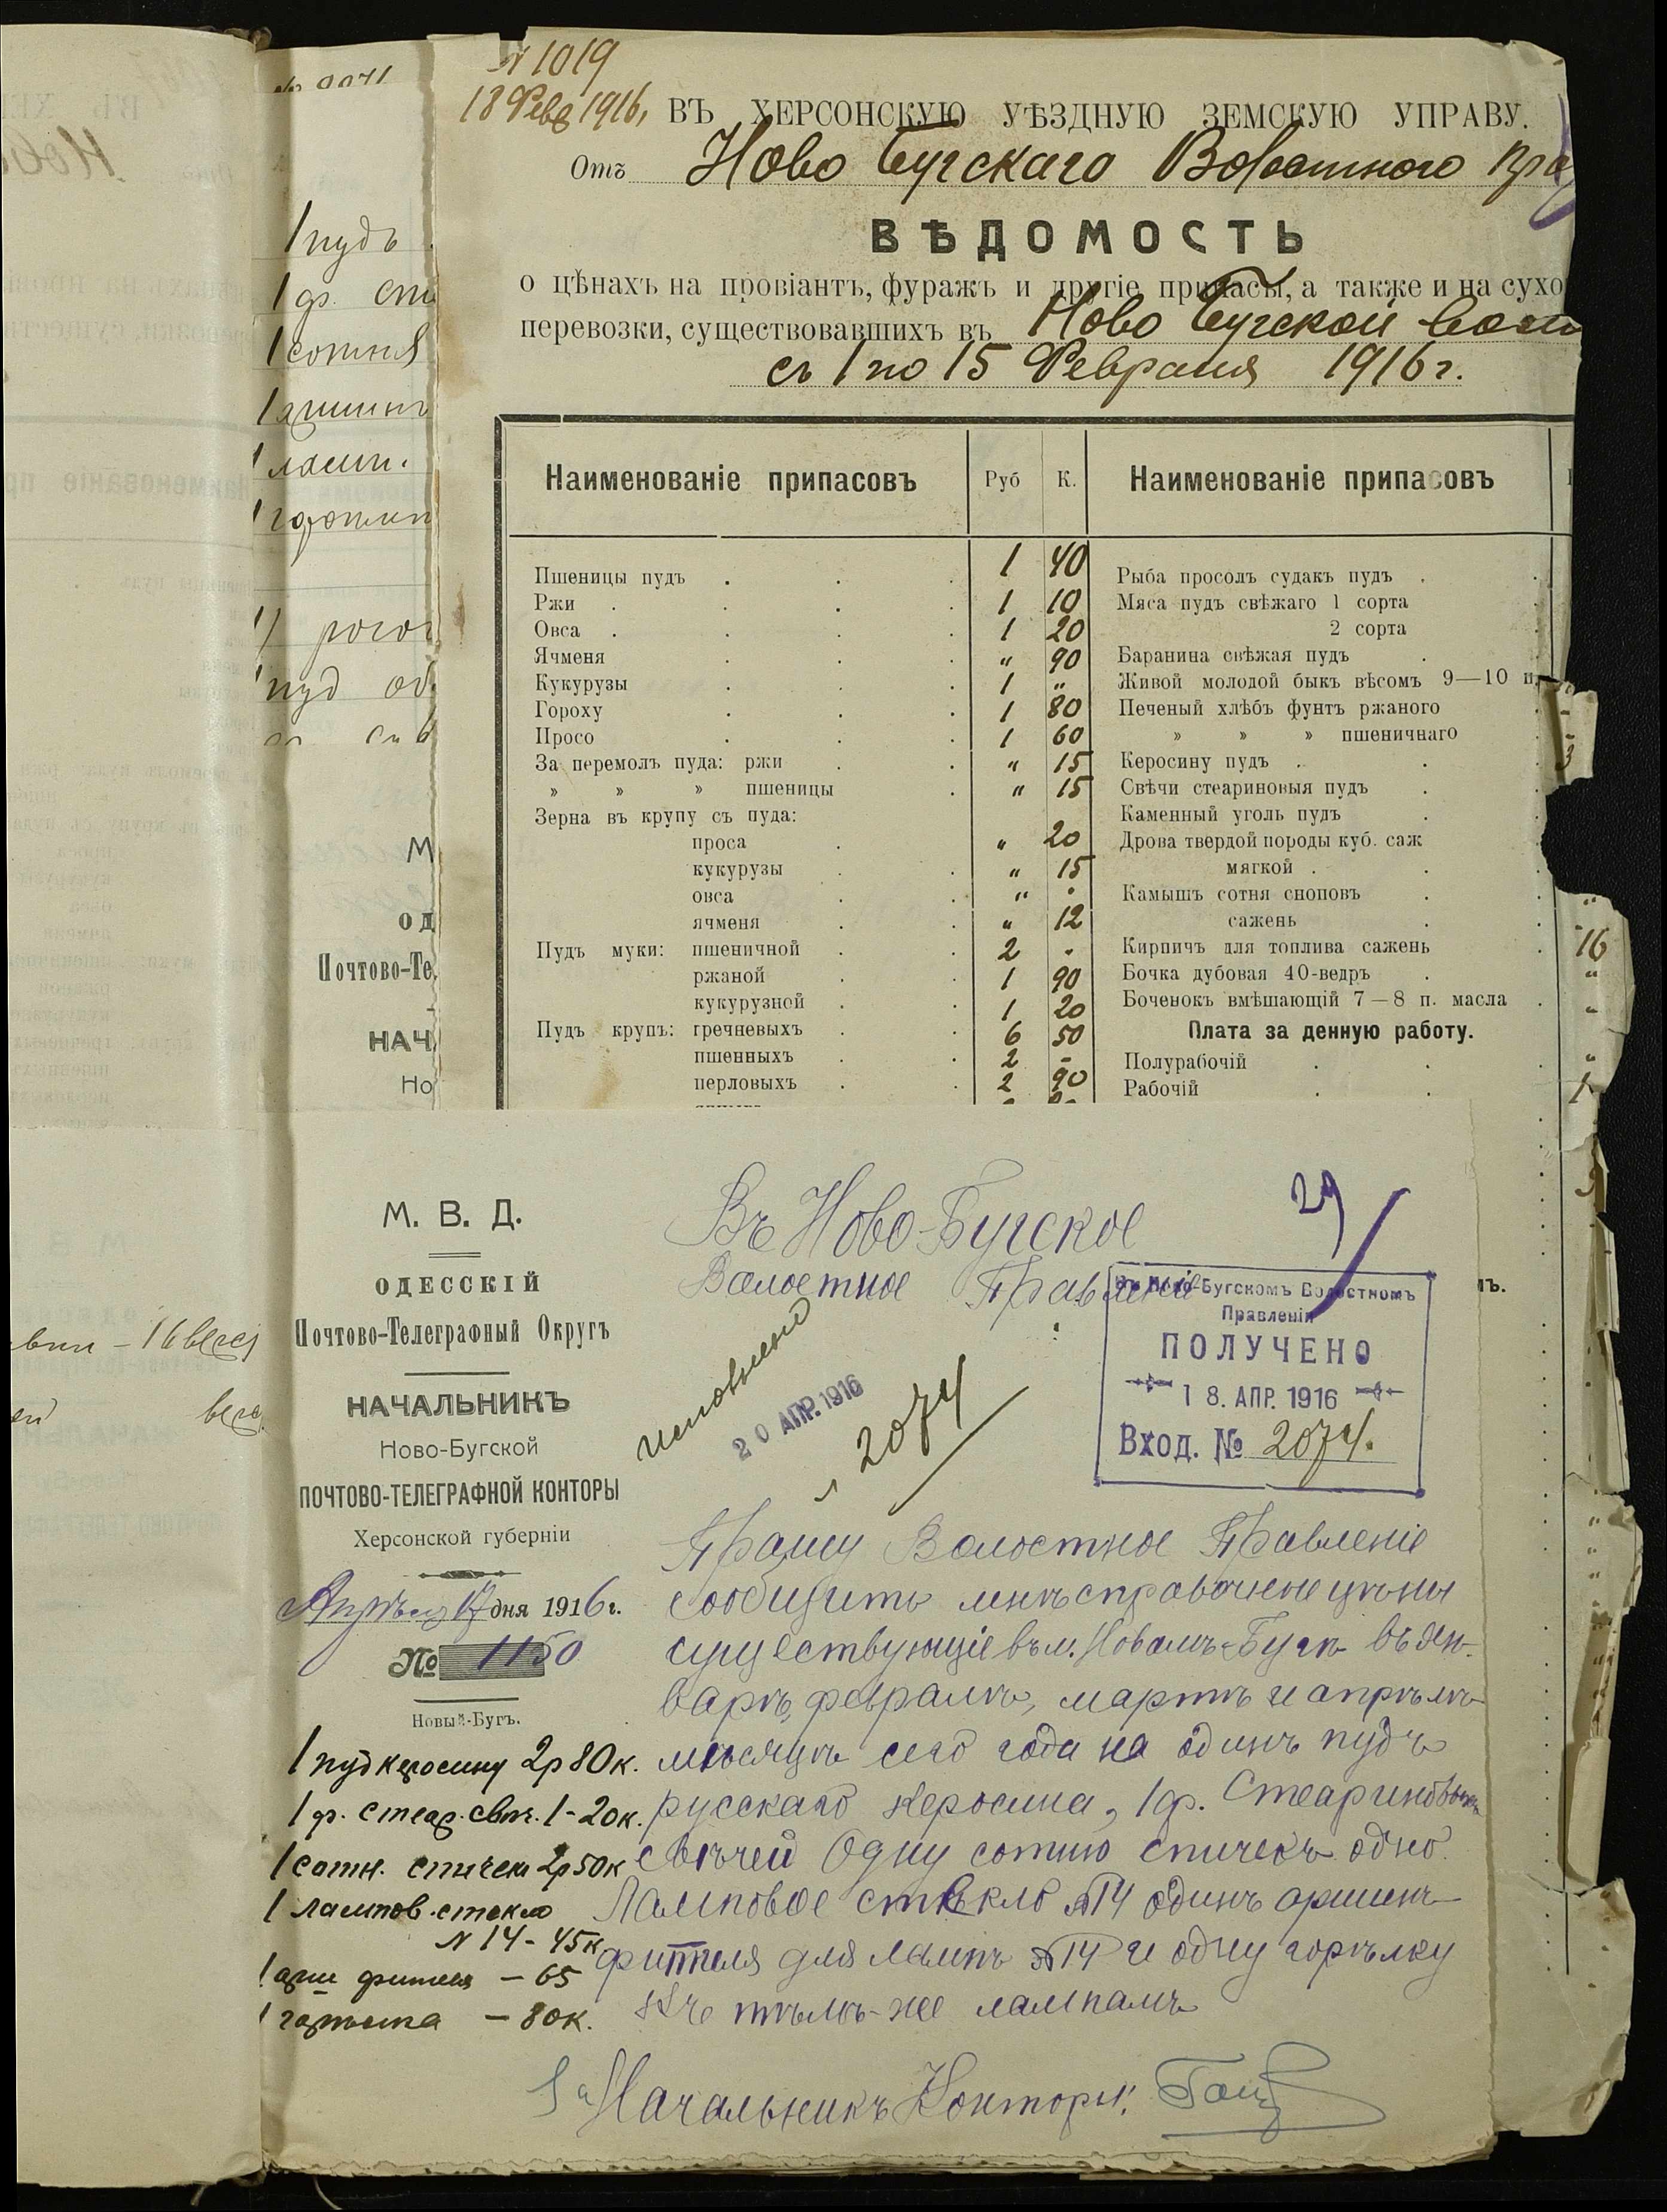 N 1019
18 Февр 1916,
ВЪ ХЕРСОНСКУЮ УѢЗДНУЮ ЗЕМСКУЮ УПРАВУ.
Отъ Ново Бугскаго Волостного Пра
ВѢДОМОСТЬ
о цѣнахъ на провіантъ, фуражъ и другіе припасы, а также и на сухо
перевозки, существовавшихъ въ Ново Бугской вол
съ 1 по 15 Февраля 1916 г.
Наименованіе припасовъ Руб К. Наименованіе припасовъ
Пшеницы пудъ . . . 1 40 Рыба просолъ судакъ пудъ .
Ржи . . . . 1 10 Мяса пудъ свѣжаго 1 сорта
Овса . . . . 1 20 2 сорта
Ячменя . . . " 90 Баранина свѣжая пудъ .
Кукурузы . . . 1 " Живой молодой быкъ вѣсомъ 9—10 п.
Гороху . . . 1 80 Печеный хлѣбъ фунтъ ржаного
Просо . . . 1 60 » » » пшеничнаго
За перемолъ пуда: ржи . . " 15 Керосину пудъ . .
» » » пшеницы . " 15 Свѣчи стеариновыя пудъ .
Зерна въ крупу съ пуда: Каменный уголь пудъ .
проса . " 20 Дрова твердой породы куб. саж
кукурузы . . " 15 мягкой . .
овса . . " . Камышъ сотня сноповъ .
ячменя . . " 12 сажень .
Пудъ муки: пшеничной . . 2 - Кирпичъ для топлива сажень 16
ржаной . . 1 90 Бочка дубовая 40-ведръ . "
кукурузной . . 1 20 Боченокъ вмѣшающій 7—8 п. масла . "
Пудъ крупъ: гречневыхъ . . 6 50 Плата за денную работу.
пшенныхъ . . 2 - Полурабочій . . "
перловыхъ . . 2 90 Рабочій . . 1
1 пудъ
1 ф. сте
1 сотня
1 аршинъ
1 ламп.
пуд
М
ОД
Почтово-Те
НАЧ
Но
М. В. Д.
ОДЕССКІЙ
Почтово-Телеграфный Округъ
НАЧАЛЬНИКЪ
Ново-Бугской
ПОЧТОВО-ТЕЛЕГРАФНОЙ КОНТОРЫ
Херсонской губерніи
Апрѣля 17 дня 1916 г.
№ 1150
Новый-Бугъ.
Въ Ново-Бугское
Волостное Правленіе
29
Въ Ново-Бугскомъ Волостномъ
Правленіи
ПОЛУЧЕНО
18. АПР. 1916
Вход. № 2074.
исполнено
20 АПР. 1916
2074
Прошу Волостное Правленіе
сообщить мнѣ справочные цѣны
существующіе въ м. Новомъ-Бугѣ въ Ян-
варѣ, февралѣ, мартѣ и апрѣлѣ
мѣсяцѣ сего года на одинъ пудъ
русскаго керосина, 1 ф. Стеариновыхъ
свѣчей Одну сотню спичекъ одно
Ламповое стѣкло №14 одинъ аршинъ
фитиля для лампъ №14 и одну горѣлку
къ тѣмъ-же лампамъ
1 пуд керосину 2р 80к.
1 ф. стеар. свѣч. 1-20к.
1 сотн. спичек 2р 50к
1 лампов. стекло
N 14 - 45к
1 арш фитиля - 65
1 горѣлка - 80к.
За Начальникъ Конторы: